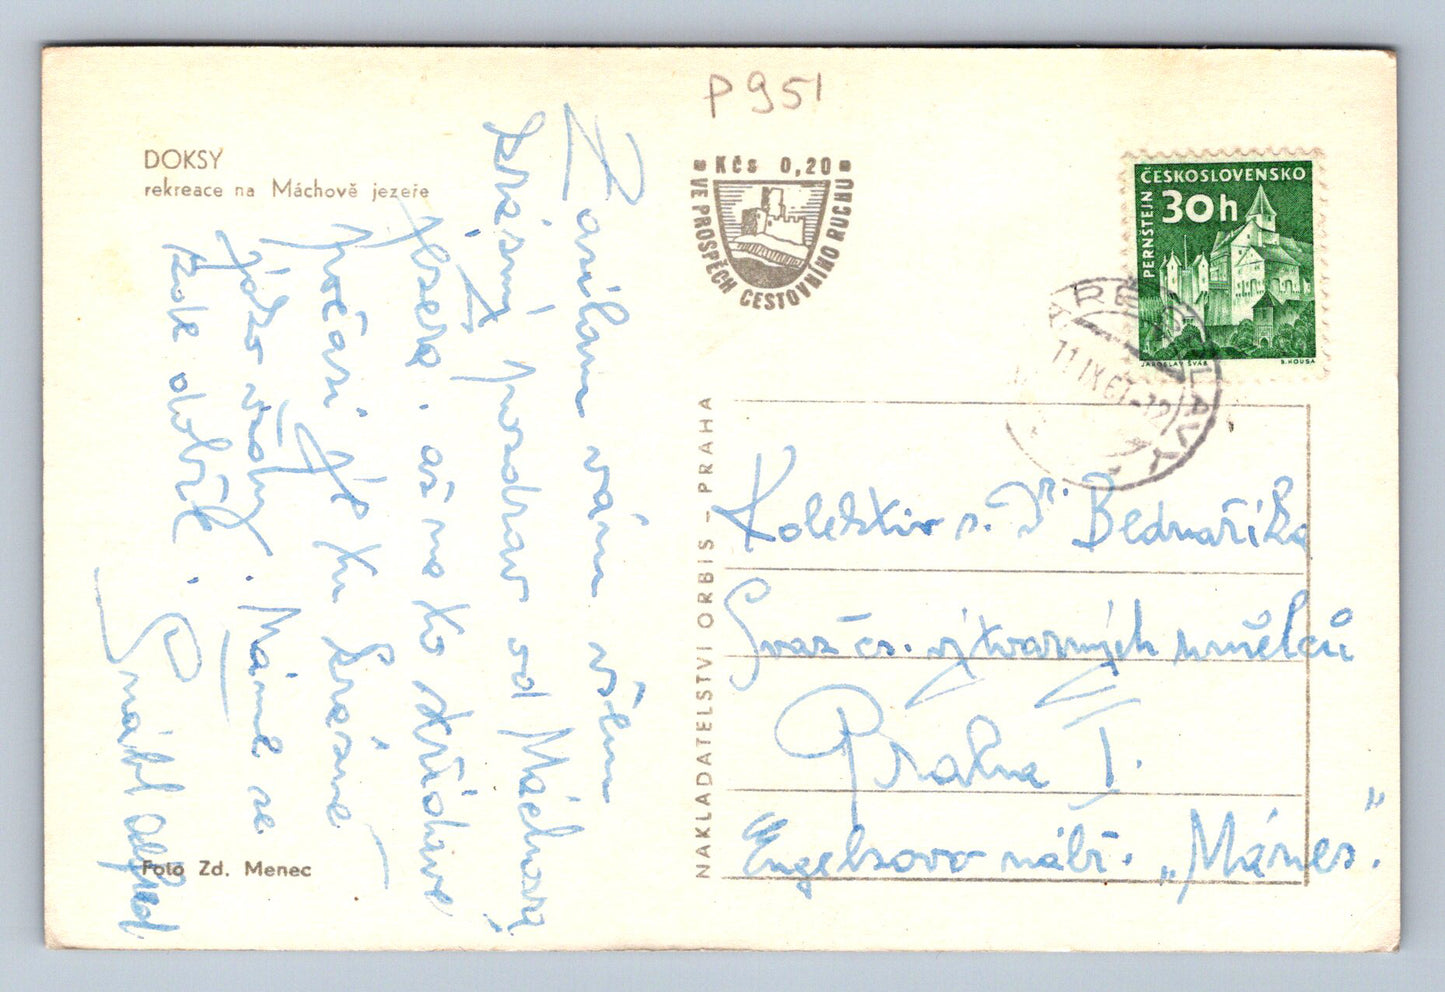 P 951
DOKSY
rekreace na Máchově jezeře
Kčs 0,20
VE PROSPĚCH CESTOVNÍHO RUCHU
ČESKOSLOVENSKO
30h
PERNŠTEJN
JAROSLAV ŠVÁB
B. HOUSA
11.IX.67-12
Zasílám vám všem
krásný pozdrav od Máchova
jezera. až na to střídavé
počasí je tu krásně
jako vždy. Máme se
zde dobře.
NAKLADATELSTVÍ ORBIS - PRAHA
Kolektiv s. Bednaříka
Svaz čs. výtvarných umělců
Praha I.
Engelsovo nábř. „Mánes".
Foto Zd. Menec